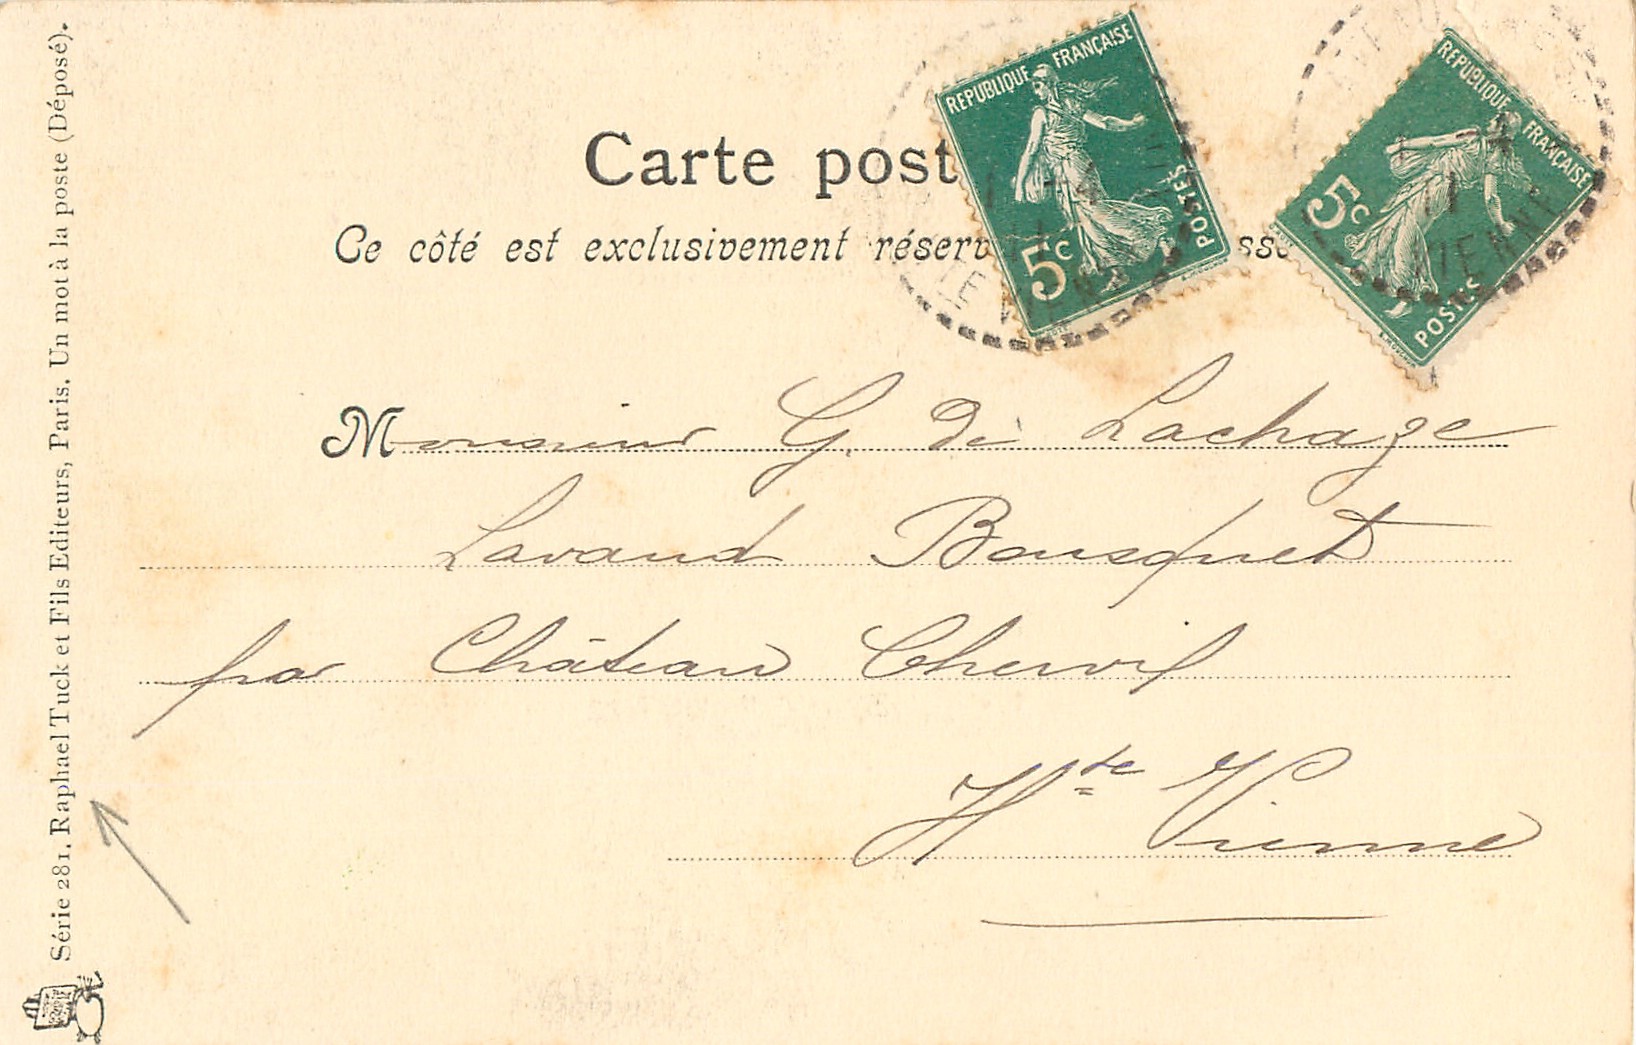 Carte post
Ce côté est exclusivement réserv sse
REPUBLIQUE FRANÇAISE
5c
POSTES
REPUBLIQUE FRANÇAISE
5c
POSTES
VIENNE
Monsieur G. De Lachaze
Lavaud Bousquet
par Château Chervix
Hte Vienne
Série 281. Raphael Tuck et Fils Editeurs, Paris. Un mot à la poste (Déposé).